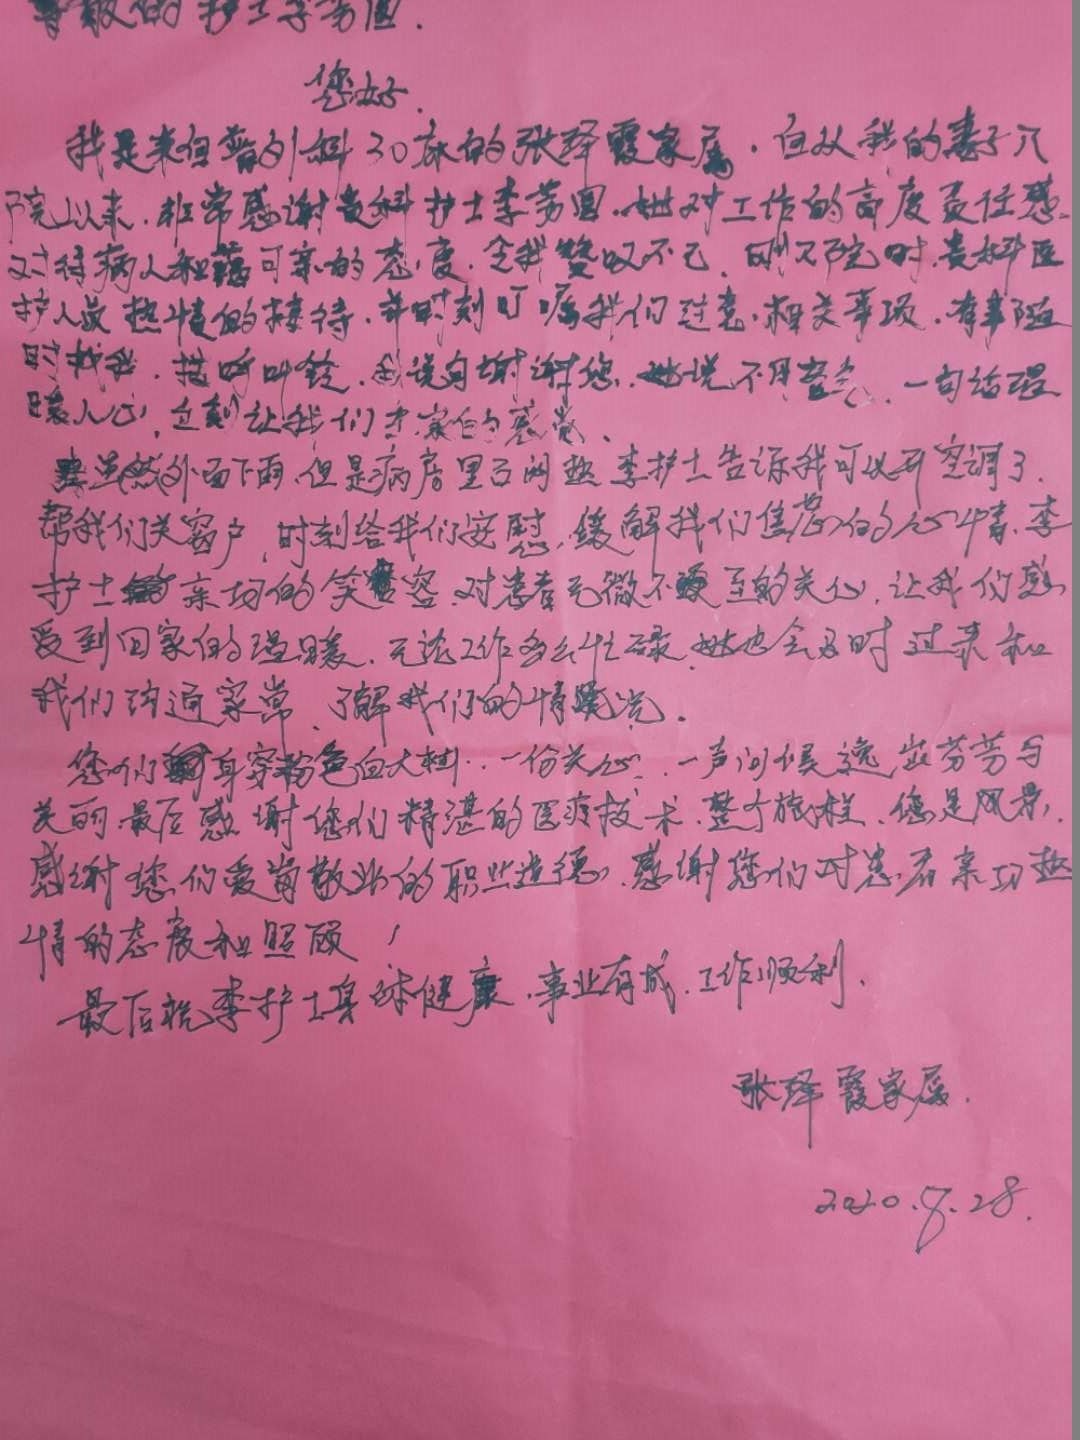 尊敬的护士李芳园.
您好.
我是来自普外科30床的张译霞家属.自从我的妻子入
院以来.非常感谢贵科护士李芳园.她对工作的高度责任感.
对待病人和蔼可亲的态度.令我赞叹不已.刚入院时.贵科医
护人员热情的接待.并时刻叮嘱我们注意.相关事项.有事随
时找我.按呼叫铃.我说句谢谢您.她说不用客气.一句话温
暖人心.立刻让我们有家的感觉.
虽然外面下雨.但是病房里还闷热李护士告诉我可以开空调了.
帮我们关窗户.时刻给我们安慰.缓解我们焦急的心情.李
护士亲切的笑容.对患者无微不至的关心.让我们感
受到回家的温暖.无论工作多么忙碌.她也会及时过来和
我们沟通家常.了解我们的情况.
您们身穿粉色白大褂..一份关心..一声问候透出芬芳与
美丽.最后感谢您们精湛的医疗技术.整个旅程.您是风景.
感谢您们爱岗敬业的职业道德.感谢您们对患者亲切热
情的态度和照顾!
最后祝李护士身体健康.事业有成.工作顺利.
张译霞家属.
2020.7.28.